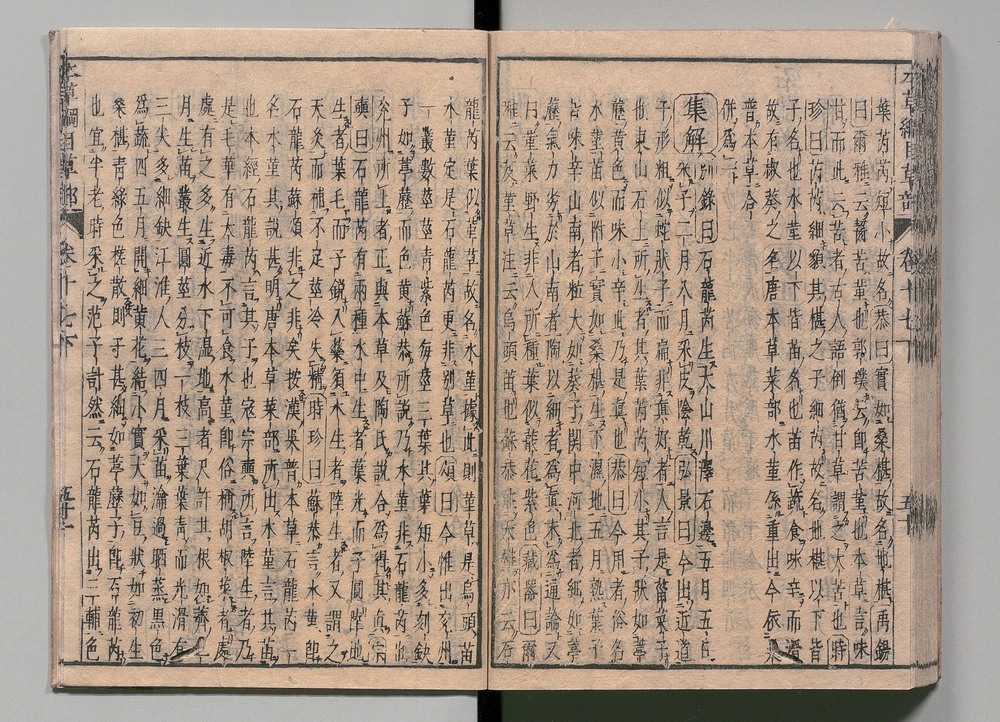 葉芮芮短小故名恭曰實如桑椹故名地椹禹錫
曰爾雅云齧苦堇也郭璞云即苦堇也本草言味
甘而此云苦者古人語倒猶甘草謂之大苦也時
珍曰芮芮細貌其椹之子細芮芮故名地椹以下皆
子名也水堇以下皆苗名也苗作蔬食味辛而滑
故有椒葵之名唐本草菜部水堇係重出今依吳
普本草合
併爲一
集解別錄曰石龍芮生太山川澤石邊五月五日
采子二月八月采皮陰乾弘景曰今出近道
子形粗似蛇牀子而扁非真好者人言是蓄菜子
也東山石上所生者其葉芮芮短小其子狀如葶
藶黃色而味小辛此乃是真也恭曰今用者俗名
水堇苗似附子實如桑椹生下濕地五月熟葉子
皆味辛山南者粒大如葵子關中河北者細如葶
藶氣力劣於山南者陶以細者爲真未爲通論又
曰堇菜野生非人所種葉似蕺花紫色藏器曰
爾雅云芨堇草注云烏頭苗也蘇恭注天雄亦云石
龍芮葉似堇草故名水堇據此則堇草是烏頭苗
水堇定是石龍芮更非別草也頌曰今惟出兗州
一叢數莖莖青紫色每莖三葉其葉短小多刻缺
子如葶藶而色黃蘇恭所說乃水堇非石龍芮也
兗州所上者正與本草及陶氏說合爲得其真宗
奭曰石龍芮有兩種水中生者葉光而子圓陸地
生者葉毛而子銳入藥須水生者陸生者又謂之
天灸而補不足莖冷失精時珍曰蘇恭言水堇即
石龍芮蘇頌非之非矣按漢吳普本草石龍芮一
名水堇其說甚明唐本草菜部所出水堇言其苗
也本經石龍芮言其子也寇宗奭所言陸生者乃
是毛堇有大毒不可食水堇即俗稱胡椒菜者處
處有之多生近水下濕地高者尺許其根如薺二
月生苗叢生圓莖分枝一枝三葉葉青而光滑有
三尖多細缺江淮人三四月采苗瀹過晒蒸黑色
爲蔬四五月開細黃花結小實大如豆狀如初生
桑椹青綠色搓散則子甚細如葶藶子即石龍芮
也宜半老時采之范子計然云石龍芮出三輔色